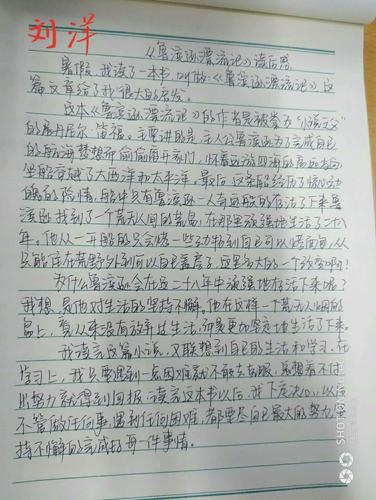 刘洋
《鲁滨逊漂流记》读后感
暑假,我读了一本书,叫做《鲁滨逊漂流记》,这
篇文章给了我很大的启发。
这本《鲁滨逊漂流记》的作者是被誉为“小说之父”
的丹尼尔·笛福。主要讲的是:主人公鲁滨逊为了完成自己
的航海梦想而偷偷离开家门,怀着远游四海的高远志向,
坐船穿越了大西洋和太平洋。最后,这条船经历了惊心动
魄的险情,船中只有鲁滨逊一人奇迹般的存活了下来。鲁
滨逊找到了一个荒无人间的荒岛,在那里顽强地生活了二十八
年。他从一开始的只会
只能住在荒野外到可以自己盖房子,这是多大的一个改变啊!
为什么鲁滨逊会在这二十八年中顽强地存活下来呢?
我想,是他对生活的坚持不懈。他在这样一个荒无人烟的
岛上,看从来没有放弃过生活,而是更加坚定地生活了下来。
我读完这篇小说,又联想到自己的生活和学习,在
学习上,我只要遇到一点困难就不敢去克服,总想着不付
出努力就得到回报。读完这本书以后,我下定决心,以后
不管做任何事,遇到任何困难,都要尽自己最大的努力,坚
持不懈的完成好每一件事情。
SHOT ON